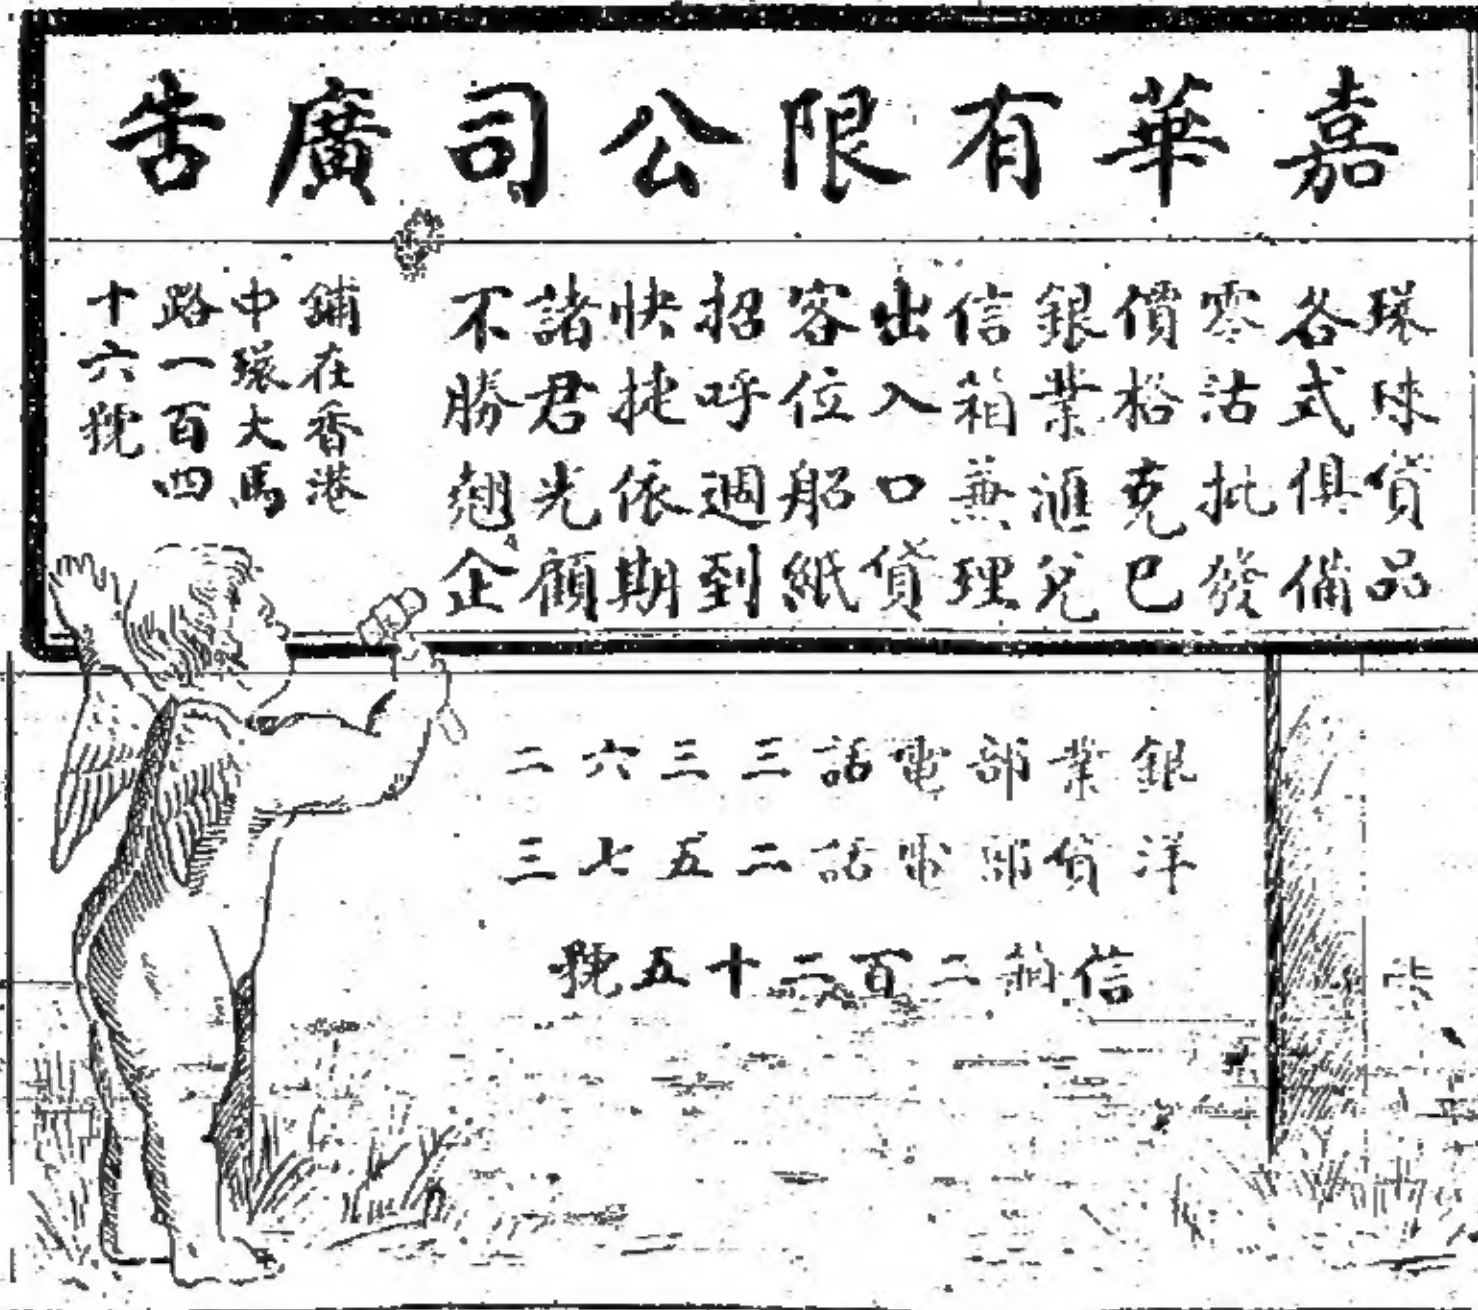 嘉華有限公司廣告
環球貨品
各式俱備
零沽批發
價格克己
銀業滙兌
信箱兼理
出入口貨
客位船紙
招呼週到
快捷依期
諸君光顧
不勝翹企
鋪在香港
中環大馬
路一百四
十六號
銀業部電話三三六二
洋貨部電話二五七三
信箱二百二十五號